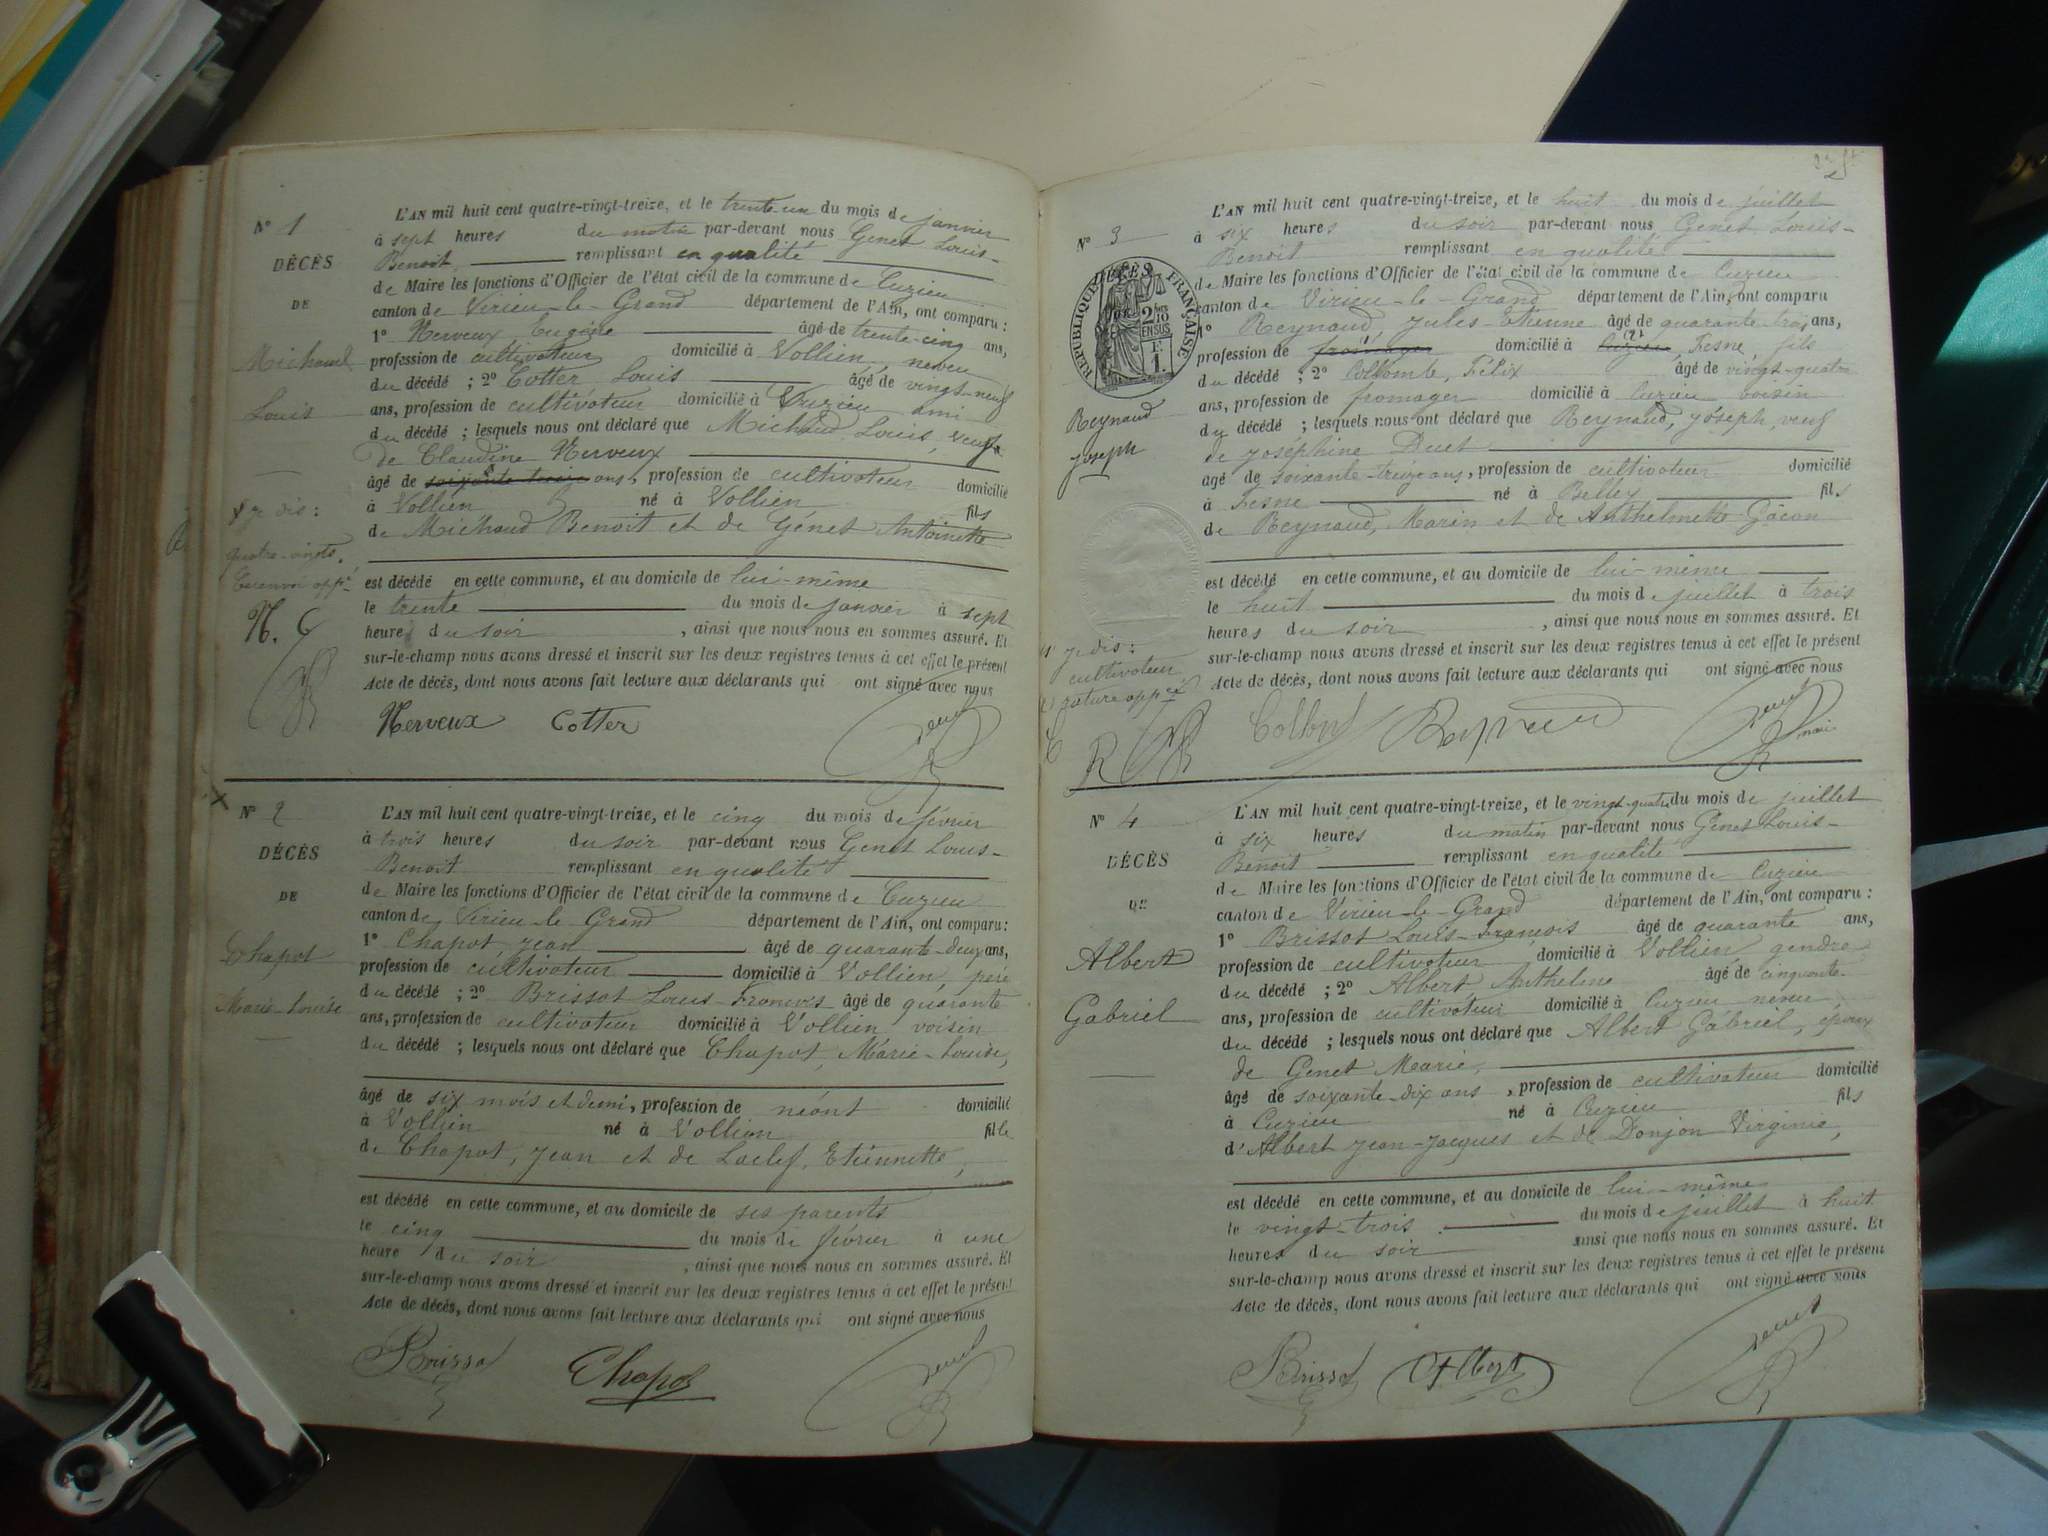 N° 1
DÉCÈS
DE
Michaud
Louis
quatre-vingts.
N. C
L'AN mil huit cent quatre-vingt-treize, et le trente-un du mois de janvier
à sept heures du matin par-devant nous Genet Louis-
Benoit, remplissant en qualité
de Maire les fonctions d'Officier de l'état civil de la commune de Cuzieu
canton de Virieu-le-Grand département de l'Ain, ont comparu :
1° Nerveux Eugène âgé de trente-cinq ans,
profession de cultivateur domicilié à Vollien, neveu
du décédé ; 2° Cotter, Louis âgé de vingt-neuf
ans, profession de cultivateur domicilié à Cuzieu ami
du décédé ; lesquels nous ont déclaré que Michaud Louis, veuf
de Claudine Nerveux
âgé de soixante treize ans, profession de cultivateur domicilié
à Vollien né à Vollien fils
de Michaud Benoit et de Génet Antoinette
est décédé en cette commune, et au domicile de lui-même
le trente du mois de janvier à sept
heures du soir, ainsi que nous nous en sommes assuré. Et
sur-le-champ nous avons dressé et inscrit sur les deux registres tenus à cet effet le présent
Acte de décès, dont nous avons fait lecture aux déclarants qui ont signé avec nous
Nerveux Cotter Genet
N° 2
DÉCÈS
DE
Chapot
Marie-Louise
L'AN mil huit cent quatre-vingt-treize, et le cinq du mois de février
à trois heures du soir par-devant nous Genet Louis-
Benoit remplissant en qualité
de Maire les fonctions d'Officier de l'état civil de la commune de Cuzieu
canton de Virieu-le-Grand département de l'Ain, ont comparu :
1° Chapot, Jean âgé de quarante-deux ans,
profession de cultivateur domicilié à Vollien, père
du décédé ; 2° Brissot Louis-François âgé de quarante
ans, profession de cultivateur domicilié à Vollien voisin
du décédé ; lesquels nous ont déclaré que Chapot, Marie-Louise,
âgé de six mois et demi, profession de néant domicilié
à Vollien né à Vollien fille
de Chapot, Jean et de Laclef, Etiennette,
est décédé en cette commune, et au domicile de ses parents
le cinq du mois de février à une
heure du soir, ainsi que nous nous en sommes assuré. Et
sur-le-champ nous avons dressé et inscrit sur les deux registres tenus à cet effet le présent
Acte de décès, dont nous avons fait lecture aux déclarants qui ont signé avec nous
Brissot Chapot Genet
N° 3
DÉCÈS
RÉPUBLIQUE FRANÇAISE
2/10 EN SUS
F. 1.
Reynaud
Joseph
cultivateur
L'AN mil huit cent quatre-vingt-treize, et le huit du mois de juillet
à six heures du soir par-devant nous Genet Louis-
Benoit remplissant en qualité
de Maire les fonctions d'Officier de l'état civil de la commune de Cuzieu
canton de Virieu-le-Grand département de l'Ain, ont comparu
1° Reynaud, Jules-Etienne âgé de quarante-trois ans,
profession de fromager domicilié à Cuzieu, Fesne, fils
du décédé ; 2° Collombe, Félix âgé de vingt-quatre
ans, profession de fromager domicilié à Cuzieu voisin
du décédé ; lesquels nous ont déclaré que Reynaud, Joseph, veuf
de Joséphine
âgé de soixante-treize ans, profession de cultivateur domicilié
à Fesne né à Belley fils
de Reynaud, Marin et de Anthelmette Gacon
est décédé en cette commune, et au domicile de lui-même
le huit du mois de juillet à trois
heures du soir, ainsi que nous nous en sommes assuré. Et
sur-le-champ nous avons dressé et inscrit sur les deux registres tenus à cet effet le présent
Acte de décès, dont nous avons fait lecture aux déclarants qui ont signé avec nous
Reynaud Genet maire
N° 4
DÉCÈS
DE
Albert
Gabriel
L'AN mil huit cent quatre-vingt-treize, et le vingt-quatre du mois de juillet
à six heures du matin par-devant nous Genet Louis-
Benoit remplissant en qualité
de Maire les fonctions d'Officier de l'état civil de la commune de Cuzieu
canton de Virieu-le-Grand département de l'Ain, ont comparu :
1° Brissot Louis-François âgé de quarante ans,
profession de cultivateur domicilié à Vollien, gendre
du décédé ; 2° Albert Anthelme âgé de cinquante-
ans, profession de cultivateur domicilié à Cuzieu neveu
du décédé ; lesquels nous ont déclaré que Albert Gabriel, époux
de Genet Marie,
âgé de soixante-dix ans, profession de cultivateur domicilié
à Cuzieu né à Cuzieu fils
d'Albert Jean-Jacques et de Donjon Virginie,
est décédé en cette commune, et au domicile de lui-même
le vingt-trois du mois de juillet à huit
heures du soir ainsi que nous nous en sommes assuré. Et
sur-le-champ nous avons dressé et inscrit sur les deux registres tenus à cet effet le présent
Acte de décès, dont nous avons fait lecture aux déclarants qui ont signé avec nous
Brissot Albert Genet